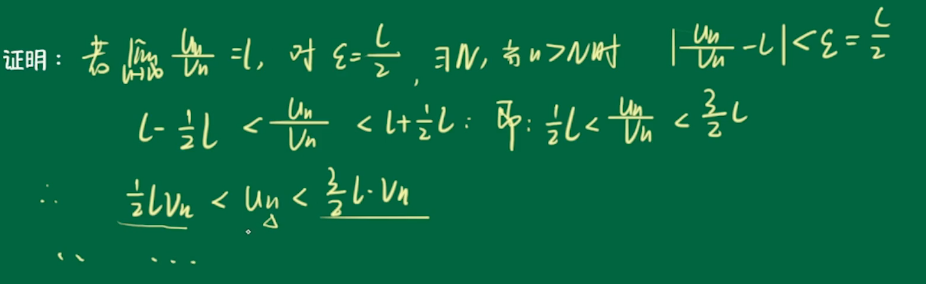 证明: 若 lim n→∞ Un/Vn = l, 对 ε = l/2, ∃N, 当 n>N时 |Un/Vn - l| < ε = l/2
l - 1/2 l < Un/Vn < l + 1/2 l : 即: 1/2 l < Un/Vn < 3/2 l
∴ 1/2 l Vn < Un < 3/2 l · Vn